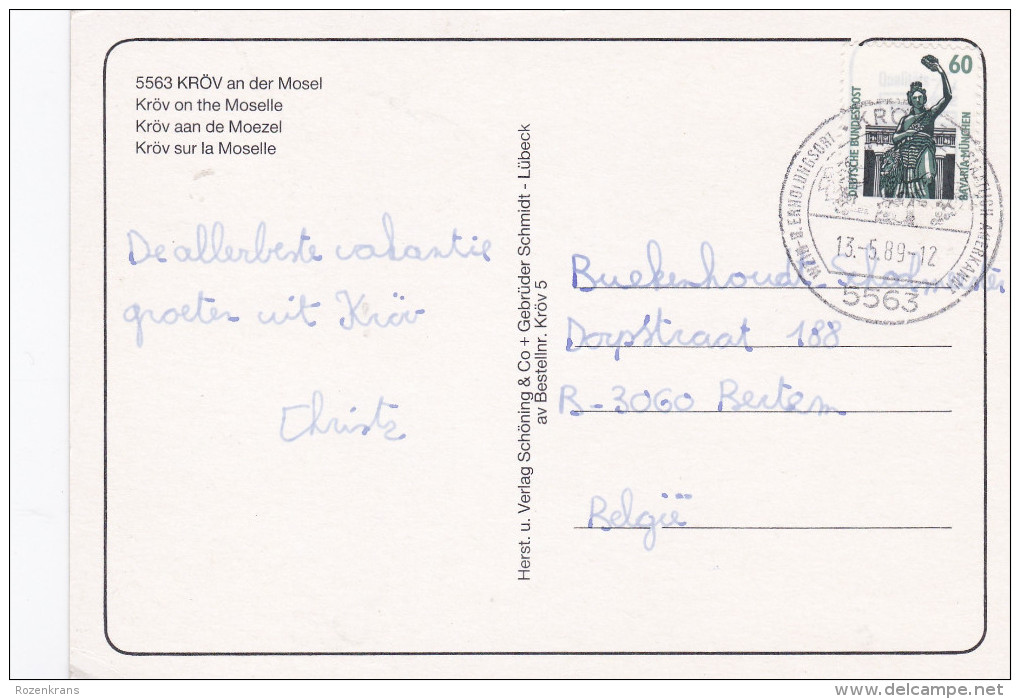 5563 KRÖV an der Mosel
Kröv on the Moselle
Kröv aan de Moezel
Kröv sur la Moselle
De allerbeste vakantie
groeten uit Kröv
Christ
Herst. u. Verlag Schöning & Co + Gebrüder Schmidt - Lübeck
av Bestellnr. Kröv 5
60
DEUTSCHE BUNDESPOST
BAVARIA MÜNCHEN
KRÖV
WEIN- U. ERHOLUNGSORT - STAATLICH ANERKANNT
13.-5.89-12
5563
Buekenhoudt
Dorpstraat 188
B-3060 Bertem
België
Rozenkrans
delcampe.net